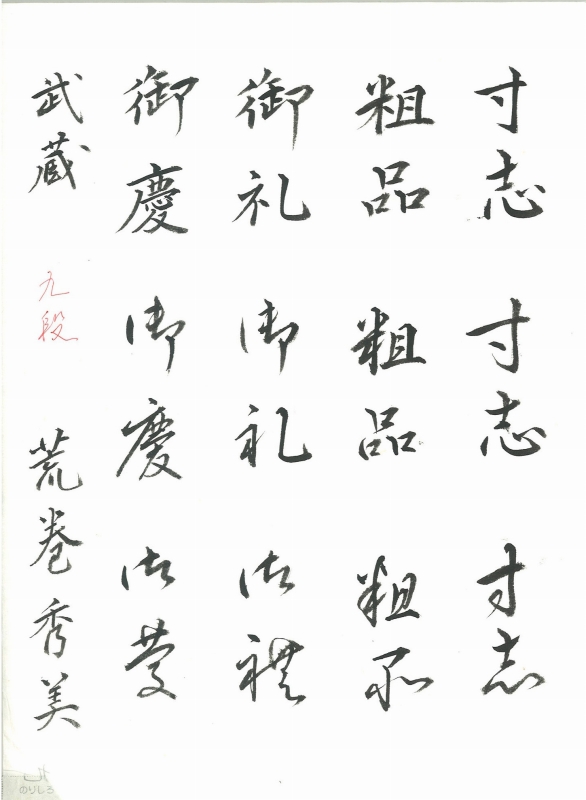 寸志 寸志 寸志
粗品 粗品 粗品
御礼 御礼 御禮
御慶 御慶 御慶
武蔵 九段 荒巻秀美
のりしろ